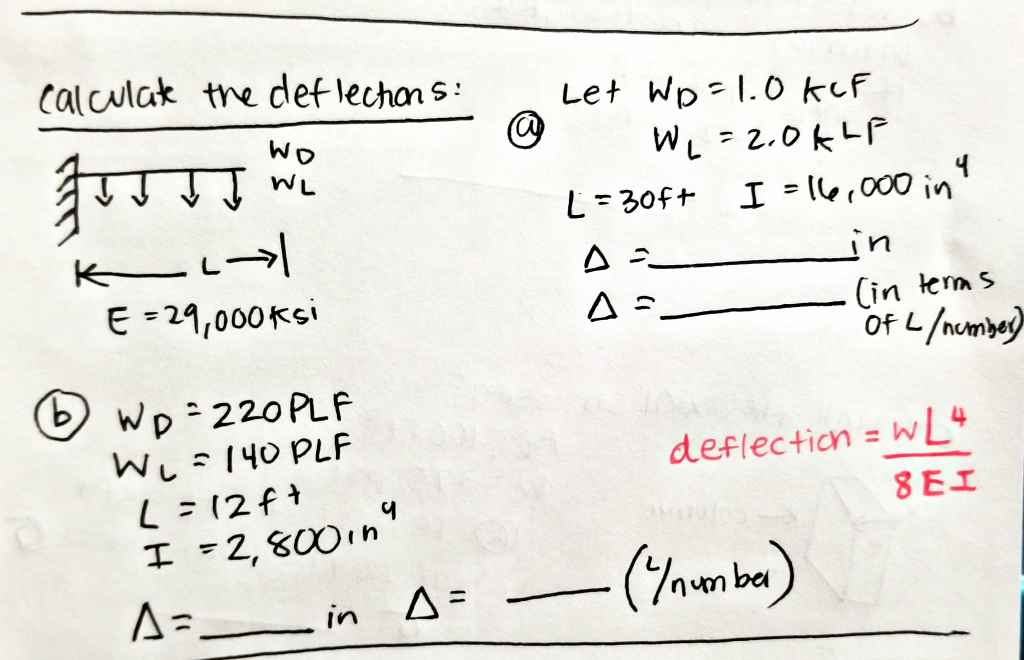 Calculate the deflections:
WD
WL
L
E = 29,000 ksi
Let WD = 1.0 KLF
ⓐ
WL = 2.0 KLF
L = 30ft I = 16,000 in⁴
Δ = ________ in
Δ = ________ (in terms
of L/number)
ⓑ WD = 220 PLF
WL = 140 PLF
L = 12 ft
I = 2,800 in⁴
Δ = ____ in Δ = ____ (L/number)
deflection = WL⁴
8EI